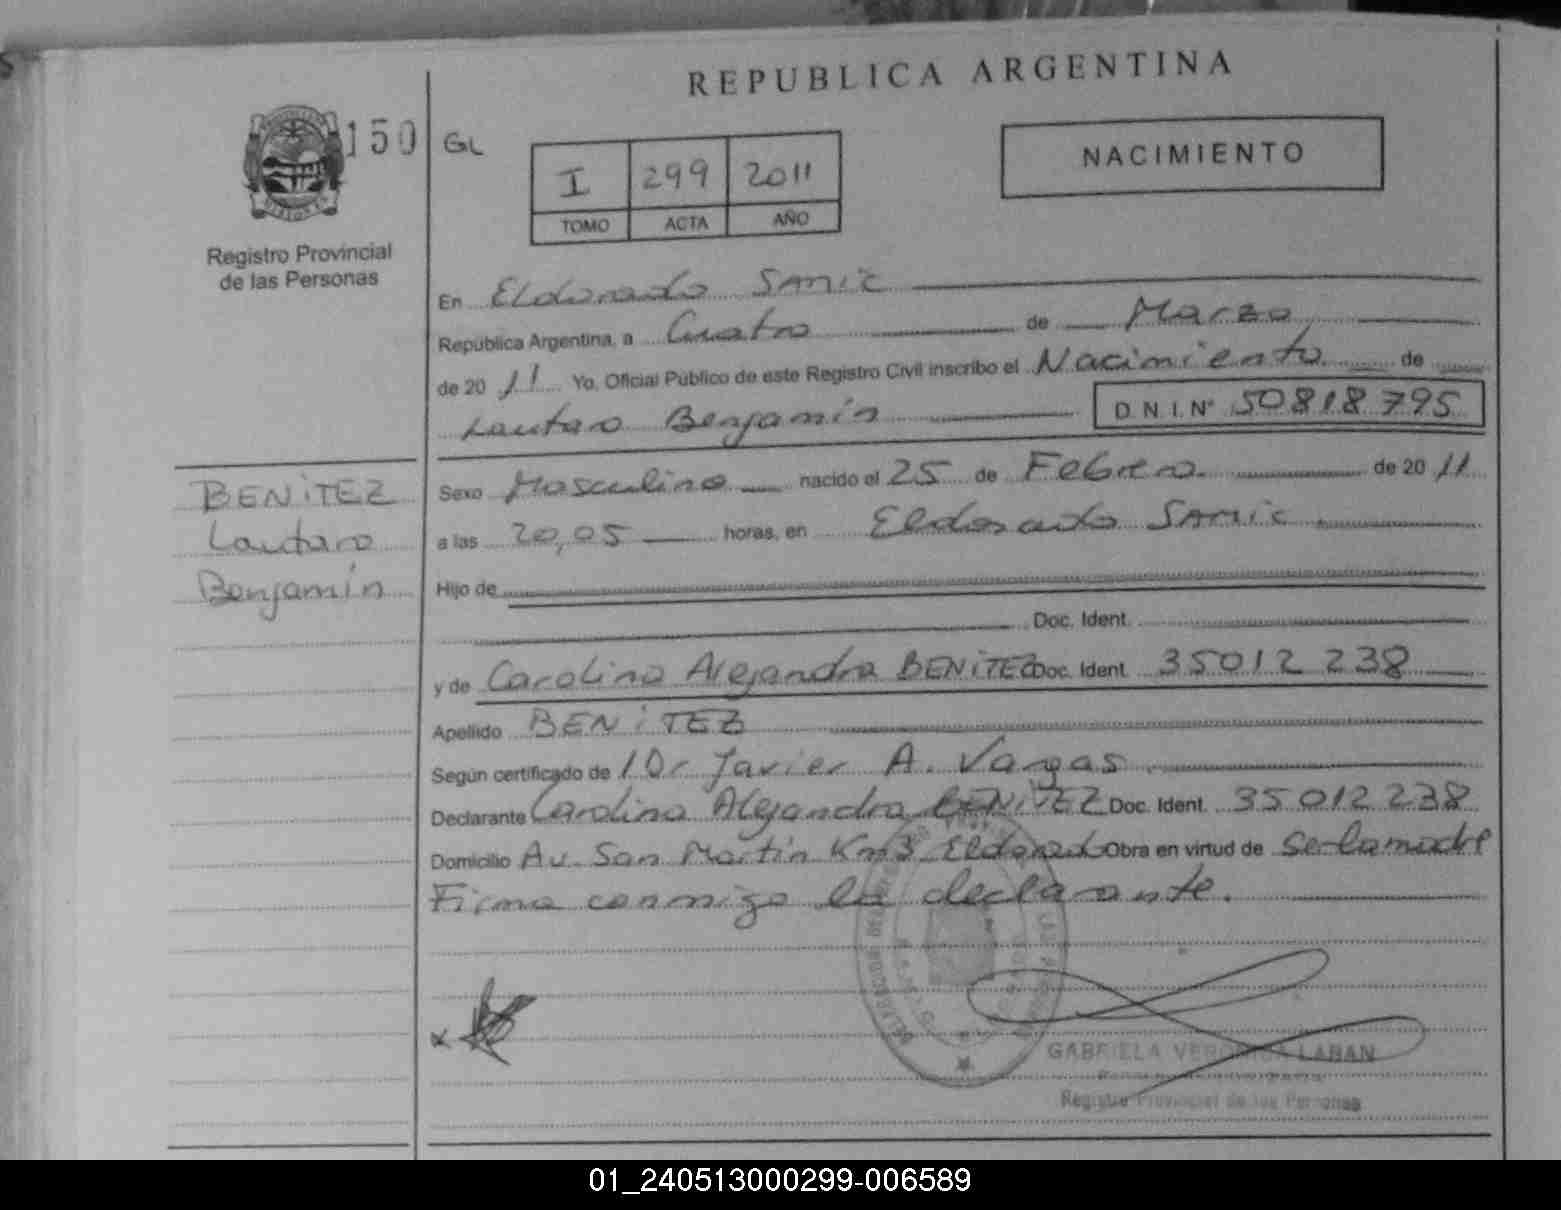 REPUBLICA ARGENTINA
150 GL
I 299 2011
TOMO ACTA AÑO
NACIMIENTO
Registro Provincial
de las Personas
En Eldorado SAMIC
República Argentina, a Cuatro de Marzo
de 20 11 Yo, Oficial Público de este Registro Civil inscribo el Nacimiento de
Lautaro Benjamín D.N.I. Nº 50818795
BENiTEZ
Lautaro
Benjamín
Sexo Masculino nacido el 25 de Febrero de 20 11
a las 20,05 horas, en Eldorado SAMIC
Hijo de
Doc. Ident.
y de Carolina Alejandra BENiTEZ Doc. Ident. 35012238
Apellido BENiTEZ
Según certificado de Dr Javier A. Vargas
Declarante Carolina Alejandra BENiTEZ Doc. Ident. 35012238
Domicilio Av. San Martin Km3 Eldorado Obra en virtud de Ser la madre
Firma conmigo la declarante.
x
GABRIELA VERONICA LABAN
Registro Provincial de las Personas
01_240513000299-006589